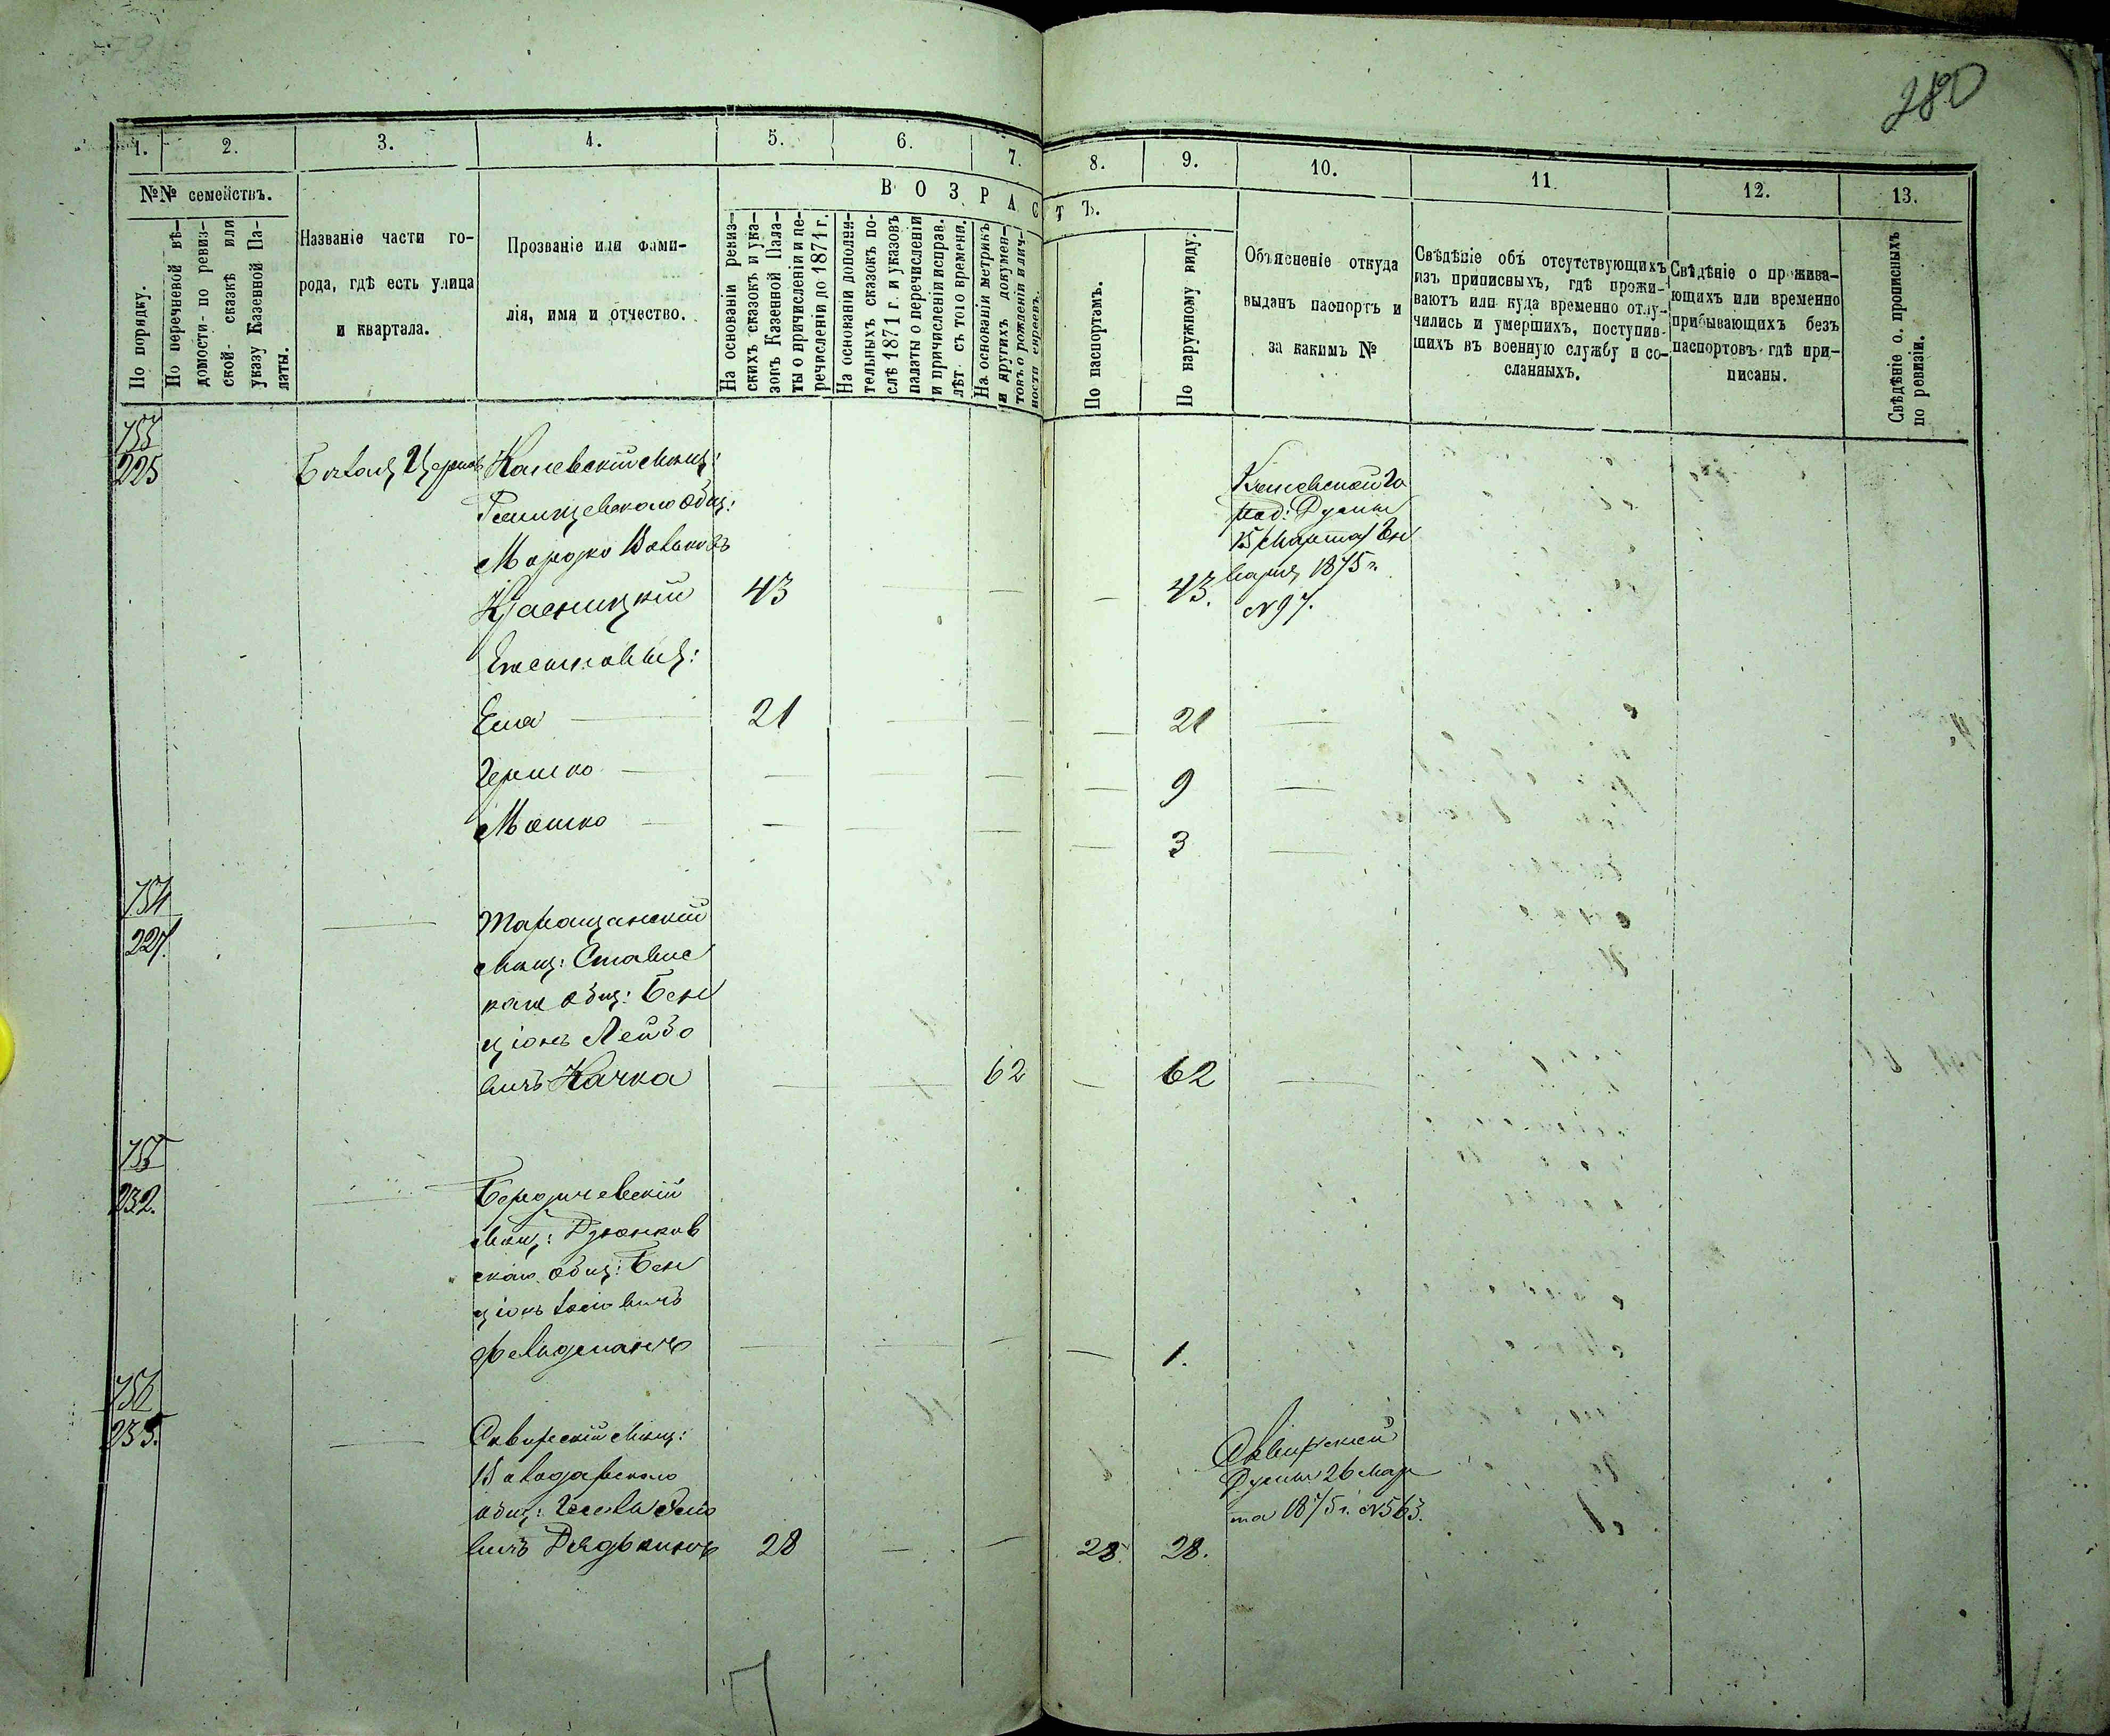 280
1. 2. 3. 4. 5. 6. 7. 8. 9. 10. 11. 12. 13.
№№ семействъ.
По порядку.
По перечневой вѣ-
домости- по ревиз-
ской- сказкѣ или
указу Казенной Па-
латы.
Названіе части го-
рода, гдѣ есть улица
и квартала.
Прозваніе или фами-
лія, имя и отчество.
ВОЗРАСТЪ.
На основаніи ревиз-
скихъ сказокъ и ука-
зовъ Казенной Пала-
ты о причисленіи и пе-
речисленіи до 1871 г.
На основаніи дополни-
тельныхъ сказокъ по-
слѣ 1871 г. и указовъ
палаты о перечисленіи
и причисленіи исправ.
лѣт. съ того времени.
На основаніи метрикъ
и другихъ докумен-
товъ о рожденіи и лич-
ности евреевъ.
По паспортамъ.
По наружному виду.
Объясненіе откуда
выданъ паспортъ и
за какимъ №
Свѣдѣніе объ отсутствующихъ
изъ приписныхъ, гдѣ прожи-
ваютъ или куда временно отлу-
чились и умершихъ, поступив-
шихъ въ военную службу и со-
сланныхъ.
Свѣдѣніе о прожива-
ющихъ или временно
прибывающихъ безъ
паспортовъ гдѣ при-
писаны.
Свѣдѣніе о прописныхъ
по ревизіи.
753
225 Бѣлая Церковь Каневскій мѣщ:
общ:
Мордко Вольковъ
Красницкій 43 — — — 43.
Каневской Го
род: Думы
15 Марта/Ян
варя 1875 г.
№ 97.
Его сыновья:
Еша — 21 — — — 21 —
Гершко — — — — — 9 —
Мошко — — — — — 3 —
754
227. — Таращанскій
мѣщ: Ставис
каго общ: Бен
ціонъ Лейбо
вичъ Качка — — 62 — 62 —
755
232. — Бердичевскій
мѣщ: Дзюнков
скаго общ: Бен
ціонъ Іосіовичъ
Фельдманъ — — — — 1.
756
235. — Сквирскій мѣщ:
Володарскаго
общ:
вичъ 28 — — 28. 28.
Сквирской
Думы 26 Мар
та 1875 г. № 563.